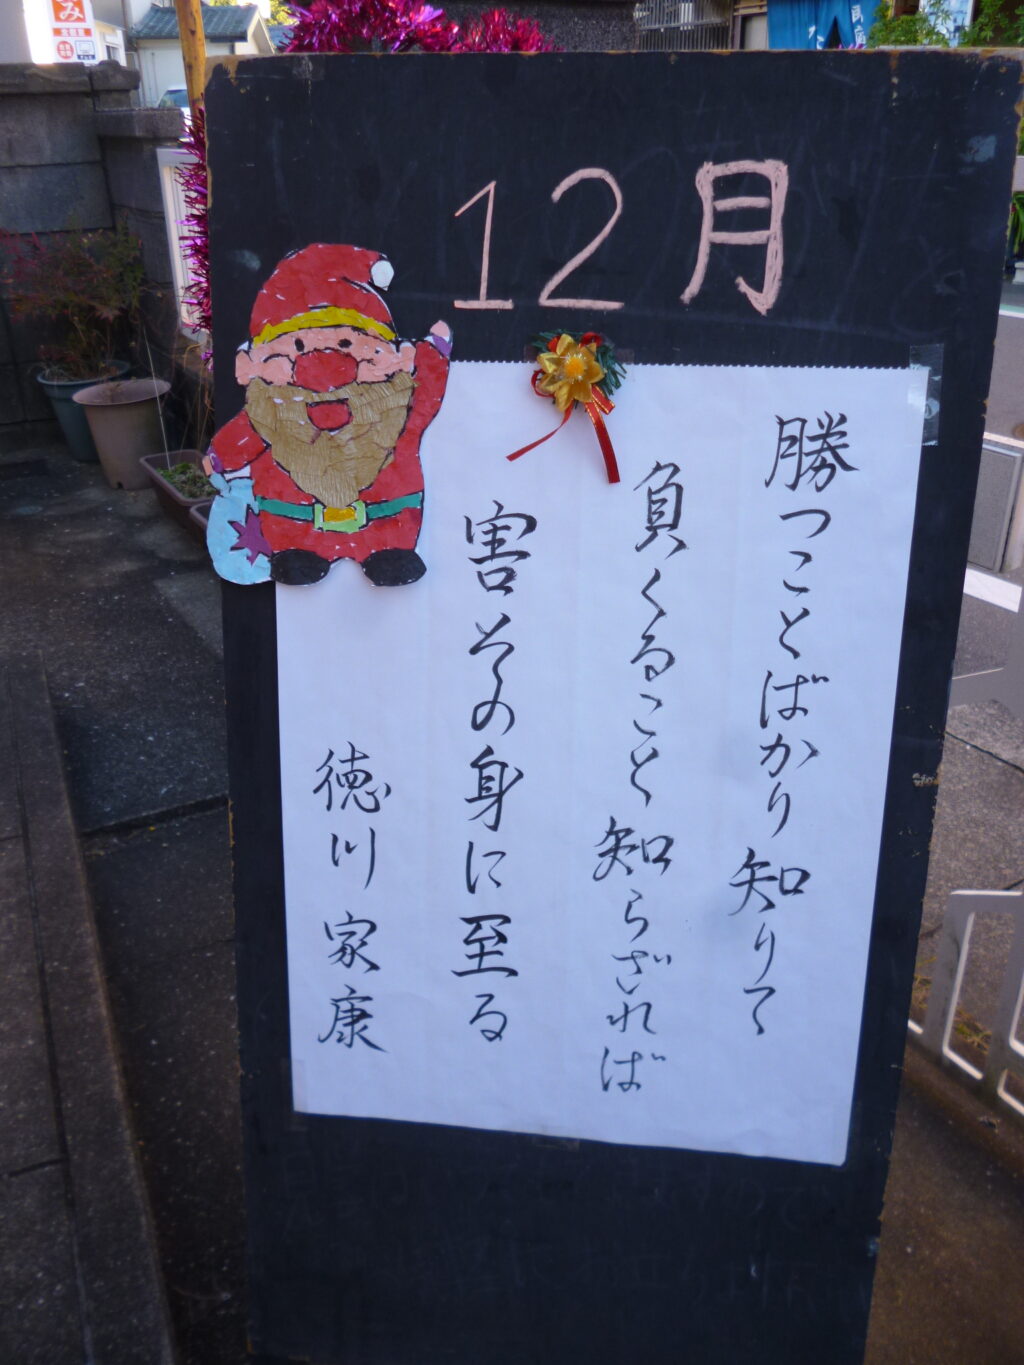 12月
勝つことばかり知りて
負くること知らざれば
害その身に至る
徳川家康
み